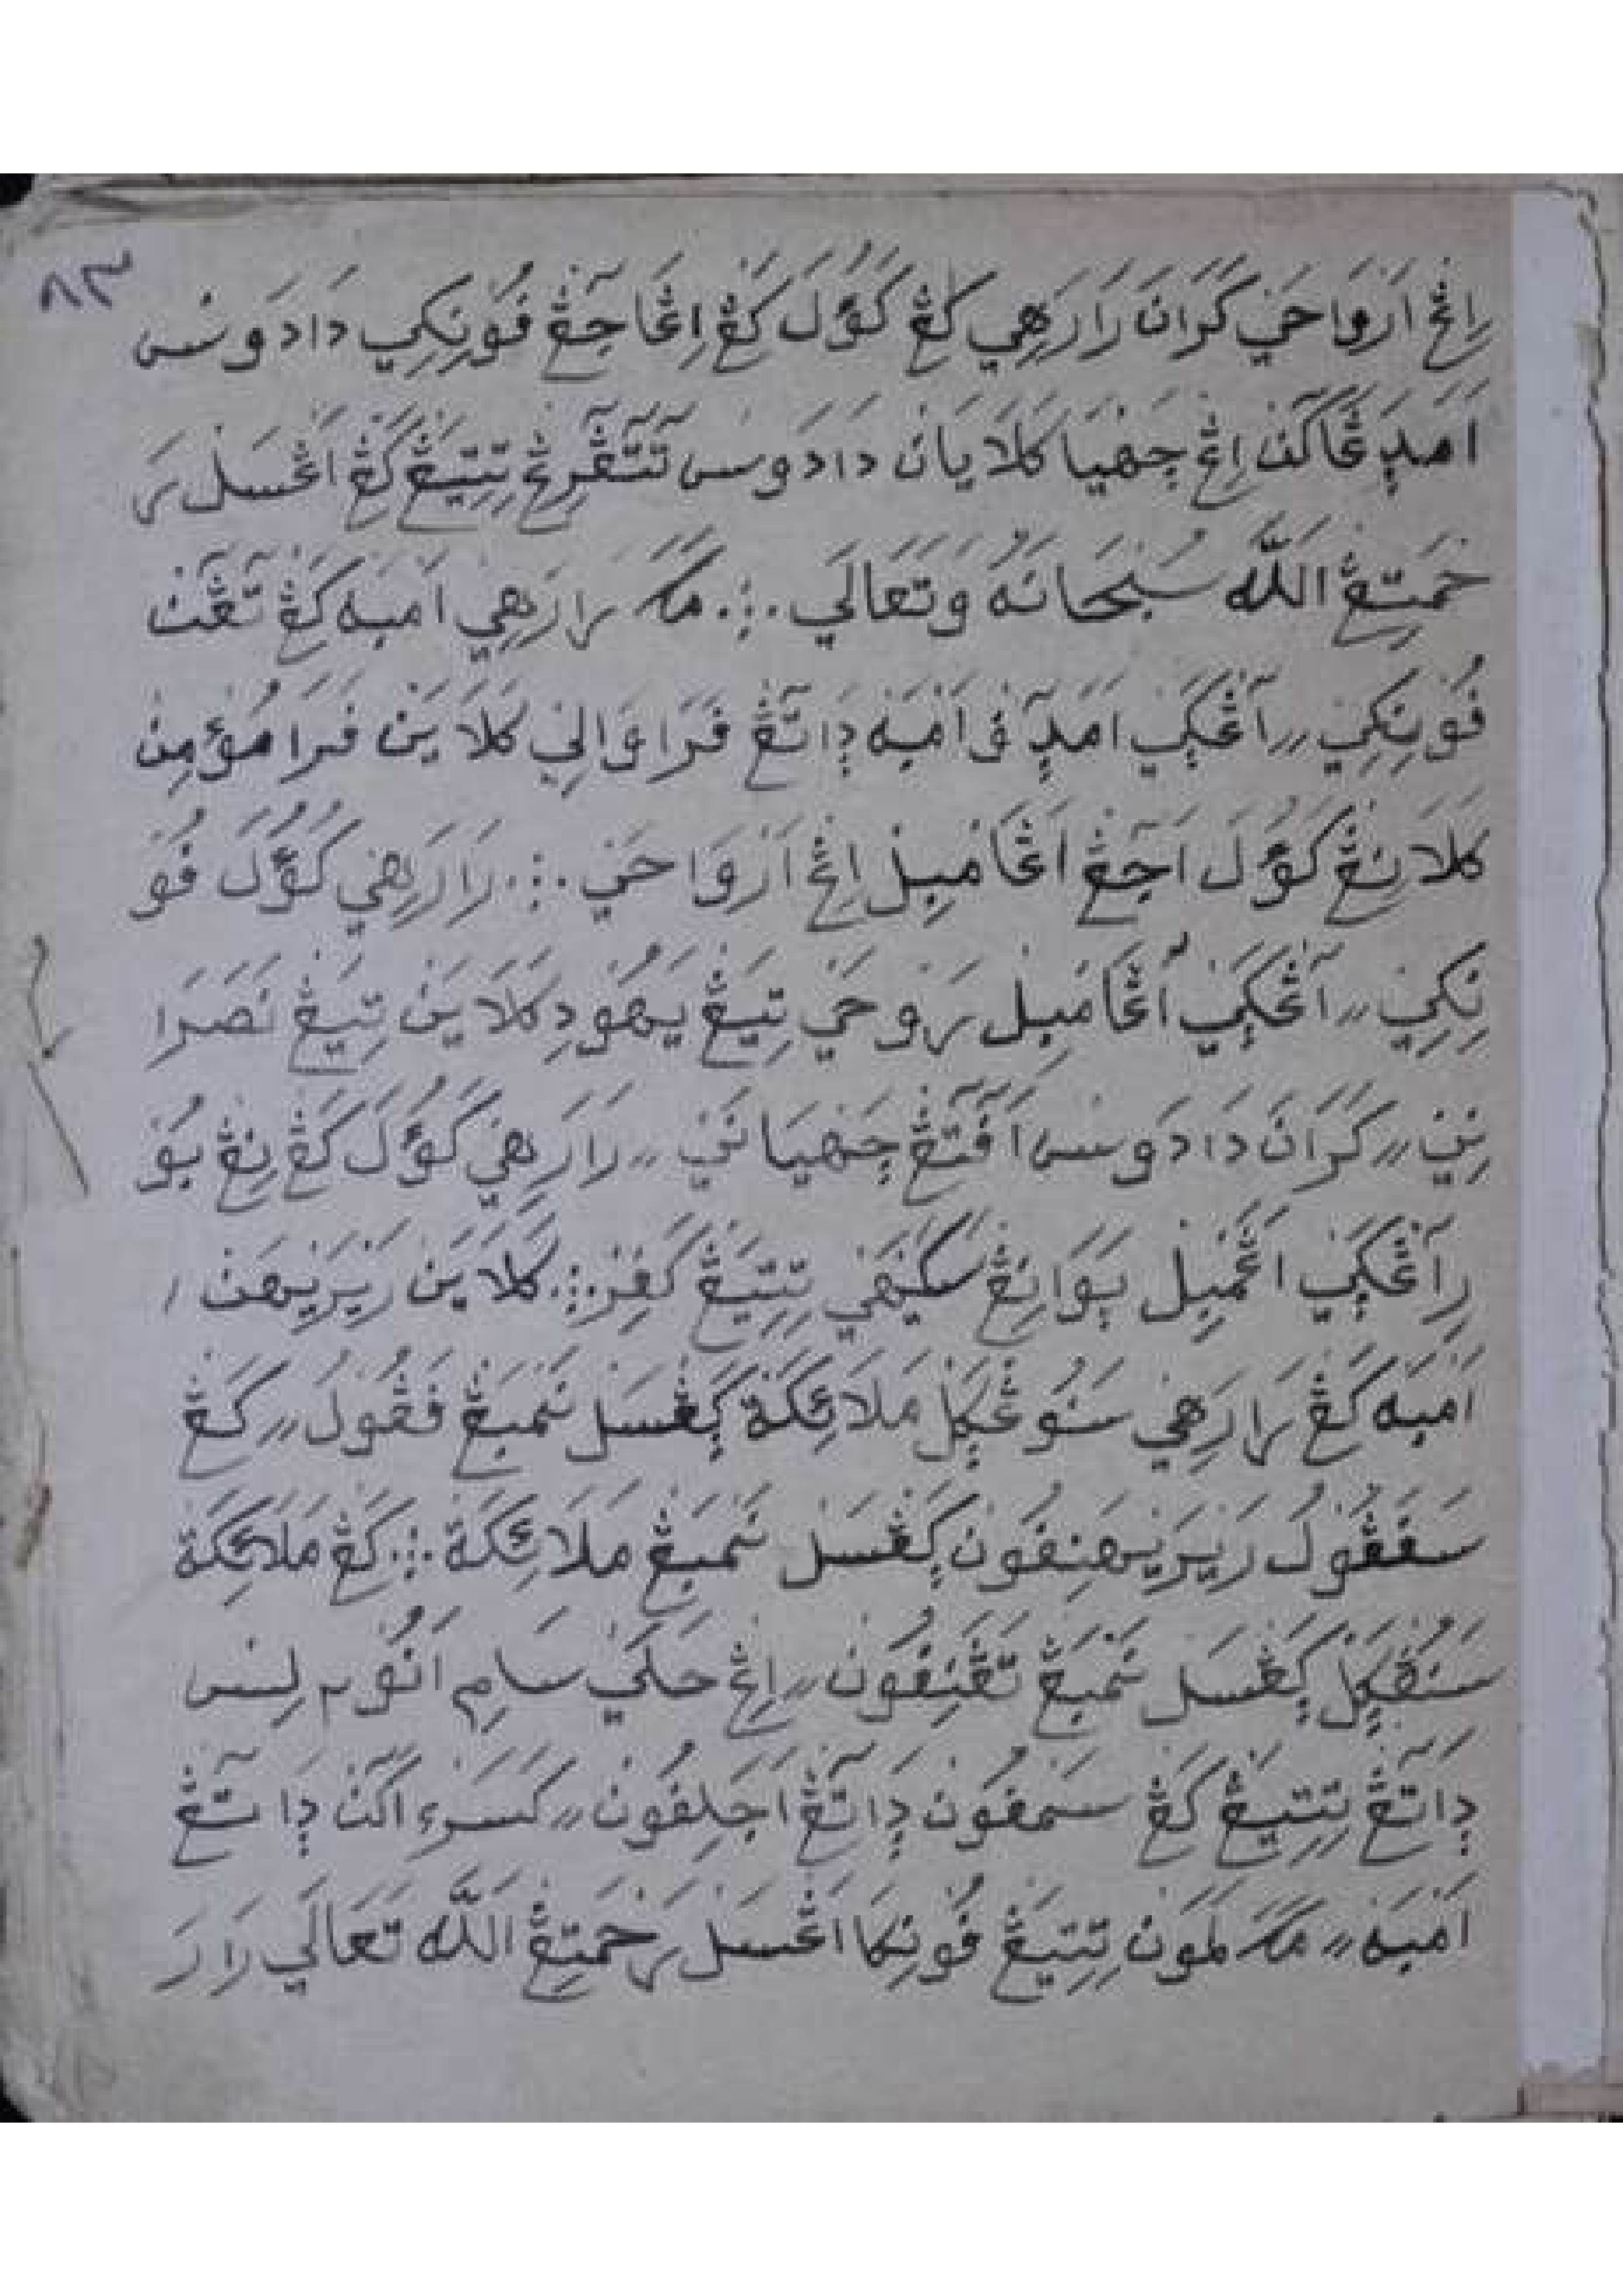 ٨٣
اِڠْ اَرْوَاحَيْ كَرَانَ رَارَهِيْ كَڠْ كَوُّلَ كَڠْ اِڠَاجَڠْ فُوْنِكِيْ دَادَوْسْ
اَمَدٜڠَاكَنْ اِڠْ جَنْهِيَا كَلَايَانْ دَادَوْسْ تَتَڤْرِڠْ تِتِيَڠْ كَڠْ اَڠْسَلْ رَ
حْمَتِڠْ اللّٰه سُبْحَانَهُ وَتَعَالَي .؛. مَكَ رَارَهِيْ اَمْبَه كَڠْ تَڠَنْ
فُوْنِكِيْ ,, اَڠْكَيْ اَمَدٜ فِ اَمْبَه دٜاتَڠْ فَرَا وَالِيْ كَلَايَنْ فَرَا مُؤْمِنْ
كَلَانِڠْ كَوُّلَ اَجَڠْ اَڠَامْبِلْ اِڠْ اَرْوَاحَيْ .؛. رَارَهِيْ كَوُّلَ فُوْ
نِكِيْ ,, اَڠْكَيْ اَڠَامْبِلْ رَوْحَيْ تِيَڠْ يَهُوْدِ كَلَايَنْ تِيَڠْ نَصَرَا
نِنِيْ ,, كَرَانَ دَادَوْسْ اَفْتَڠْ جَنْهِيَانَيْ ,, رَارَهِيْ كَوُّلَ كَڠْ نِڠْ بُوْ
رِاَڠْكَيْ اَڠَمْبِلْ بَوَانِڠْ سَكَيْهَيْ تِتِيَڠْ كَفِرْ .؛. كَلَايَنْ رَيْرَيْهَنْ
اَمْبَه كَڠْ رَارَهِيْ سَنُوڠْكِلْ مَلَائِكَةْ كٜڠْسَلْ سَمْبَڠْ فَڠُوْلُ ,, كَڠْ
سَفَڠُوْلُ رَيْرَيْهَنِفُوْن كٜڠْسَلْ سَمْبَڠْ مَلَائِكَةْ .؛. كَڠْ مَلَائِكَةْ
سَنُڠْكِلْ كٜڠْسَلْ سَمْبَڠْ تَڠَنِفُوْن ,, اِڠْ حَلَيْ سَامِ اَنُوْمْ لِسْ
دٜاتَڠْ تِتِيَڠْ كَڠْ سَمْفُوْن دٜاتَڠْ اَجَلِفُوْنْ ,, كَسَرَءِ اَكَنْ دٜاتَڠْ
اَمْبَه ,, مَكَ لَمَوْن تِتِيَڠْ فُوْنِكَا اَڠْسَلْ رَحْمَتِڠْ اللّٰه تَعَالَي رَارَ